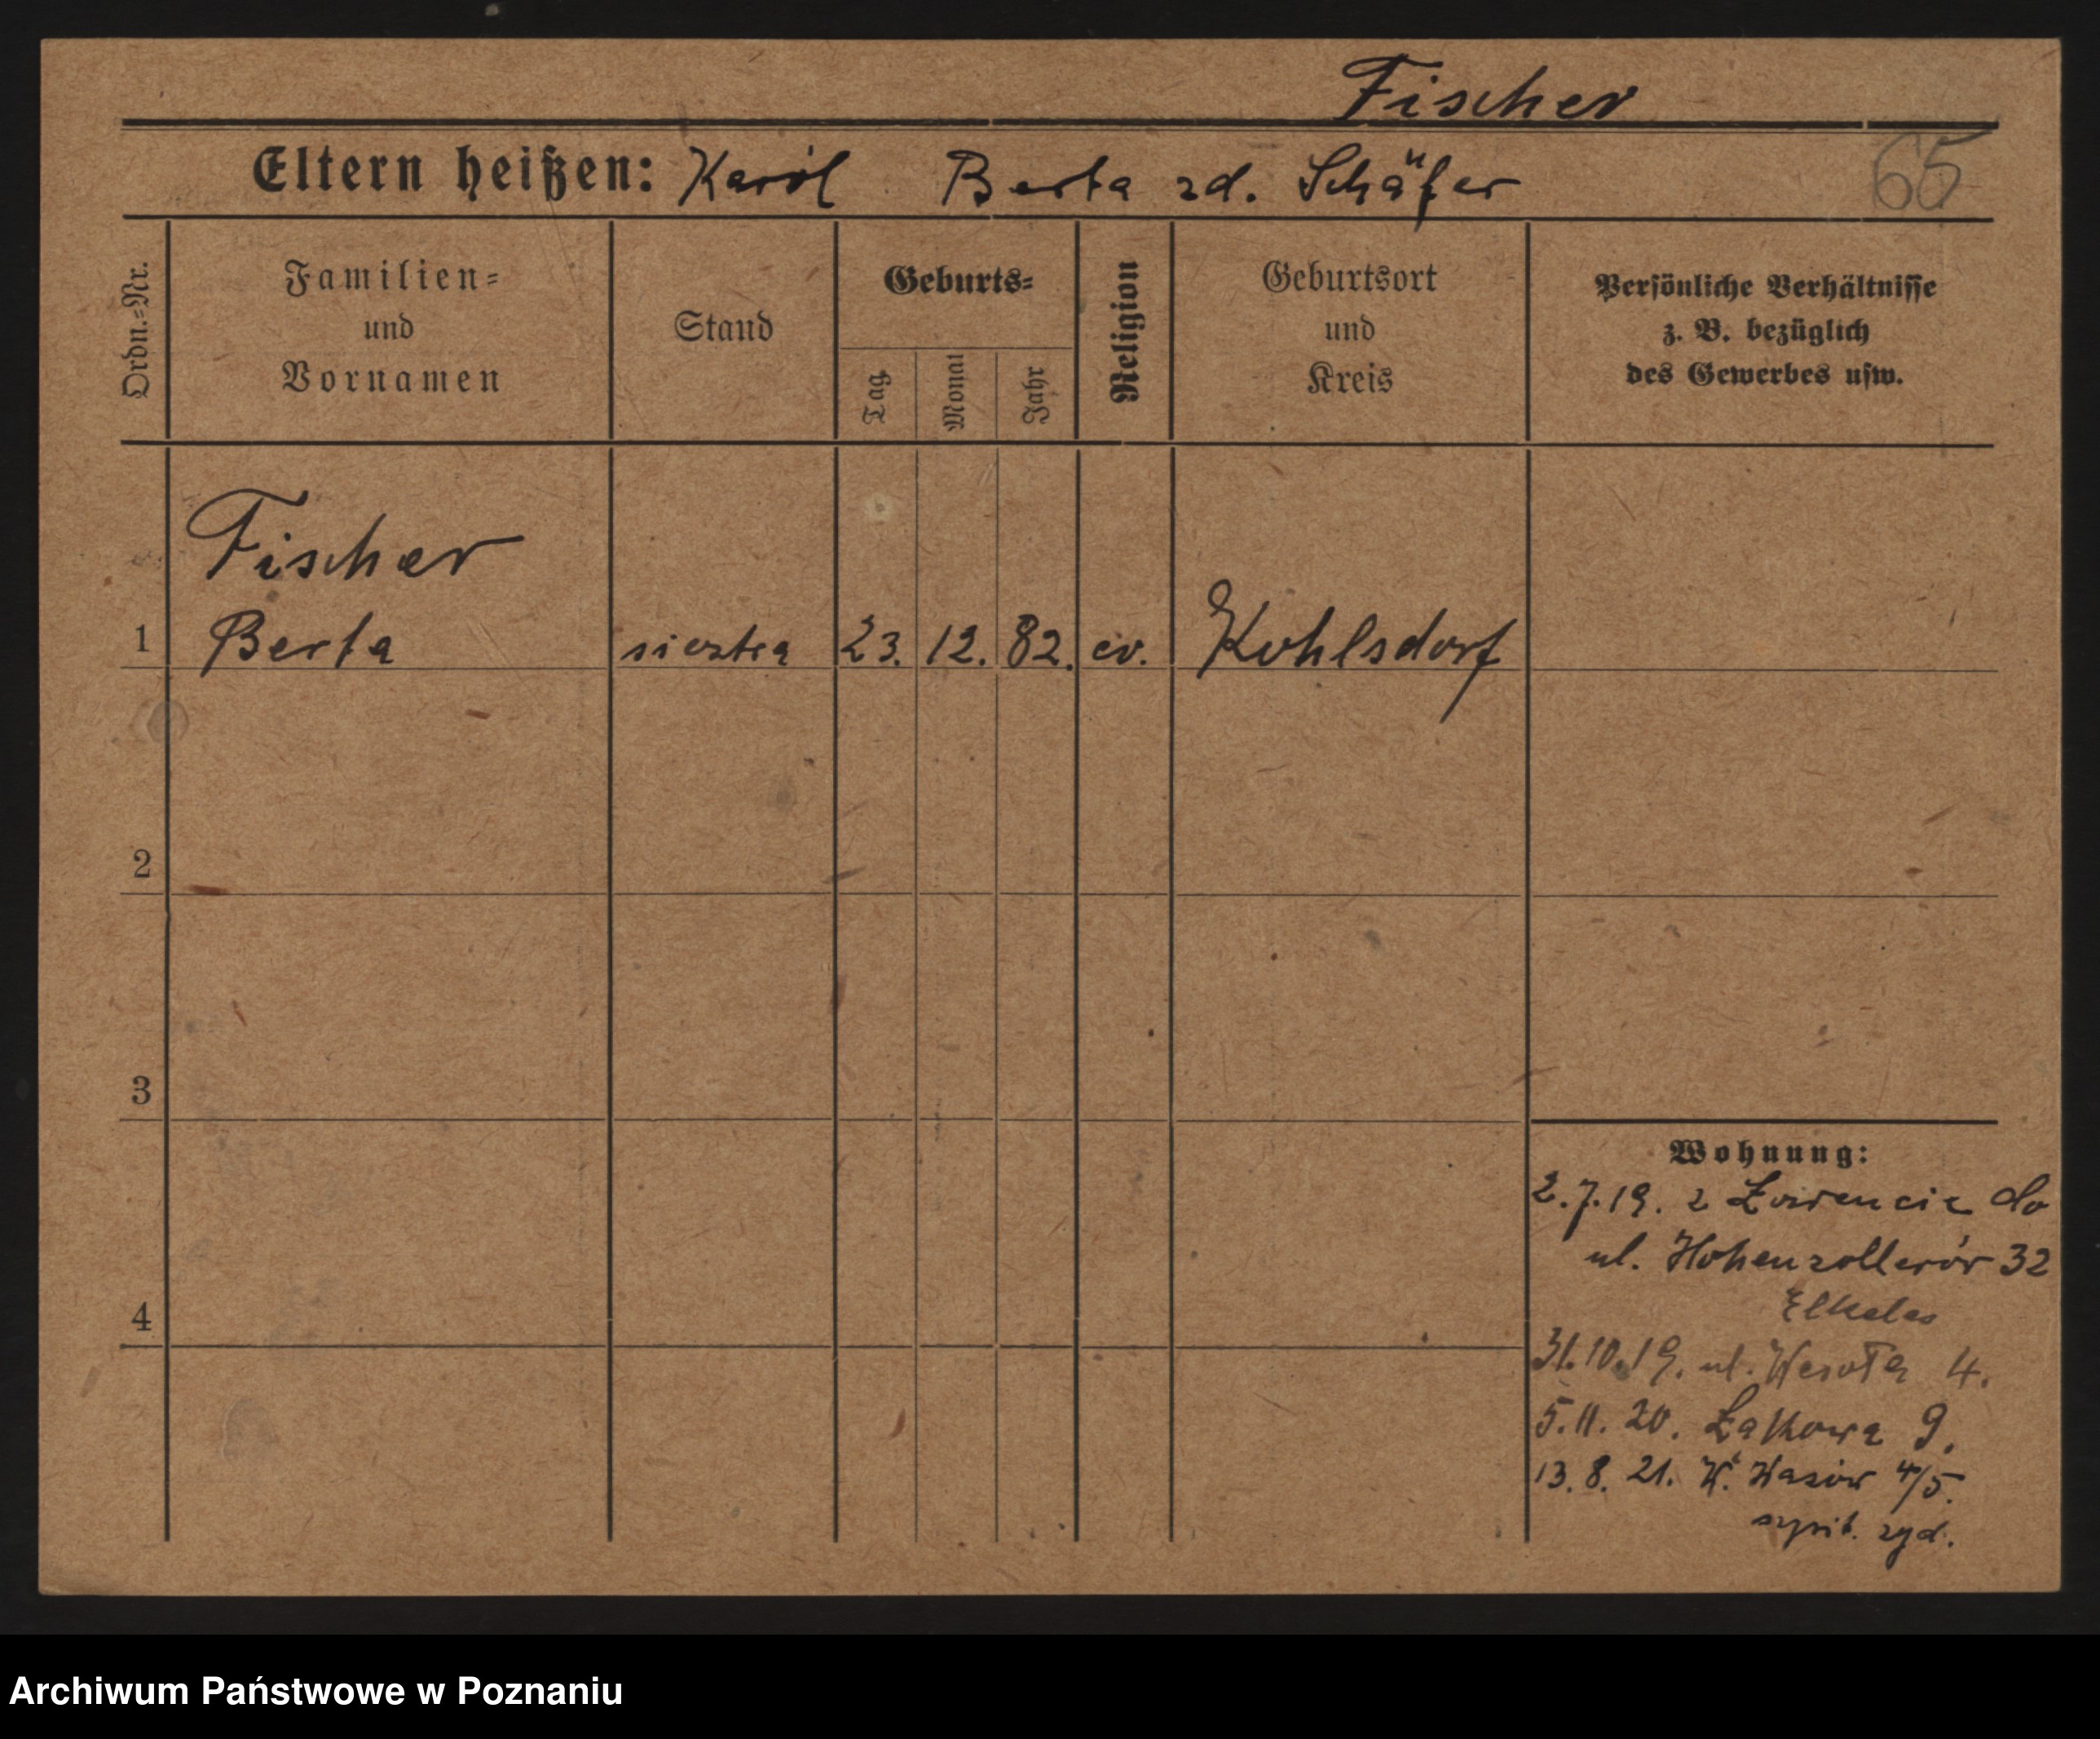 Fischer
Eltern heißen: Karol Berta zd. Schäfer
65
Ordn.-Nr.
Familien-
und
Vornamen
Stand
Geburts-
Tag
Monat
Jahr
Religion
Geburtsort
und
Kreis
Persönliche Verhältnisse
z. B. bezüglich
des Gewerbes usw.
Fischer
1 Berta siostra 23. 12. 82. ev. Kohlsdorf
2
3
4
Wohnung:
2.7.19. z do
ul. Hohenzollerów 32
Elkeles
31.10.19. ul. 4.
5.11.20. Łąkowa 9.
13.8.21. W. 4/5.
szpit. żyd.
Archiwum Państwowe w Poznaniu